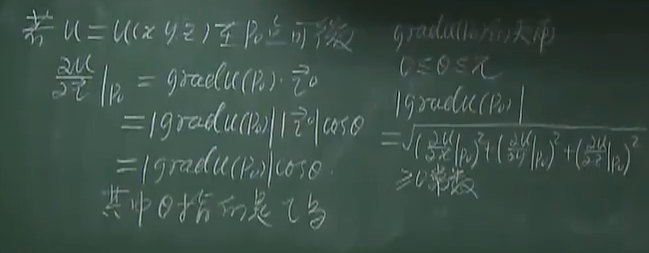 若 u = u(x y z) 在 P₀ 点可微
∂u/∂l |P₀ = gradu(P₀) · l⃗⁰
= |gradu(P₀)| |l⃗⁰| cosθ
= |gradu(P₀)| cosθ.
其中 θ 指的是 l 与
gradu(P₀) 的夹角
0 ≤ θ ≤ π
|gradu(P₀)|
= √((∂u/∂x |P₀)² + (∂u/∂y |P₀)² + (∂u/∂z |P₀)²)
≥ 0 常数